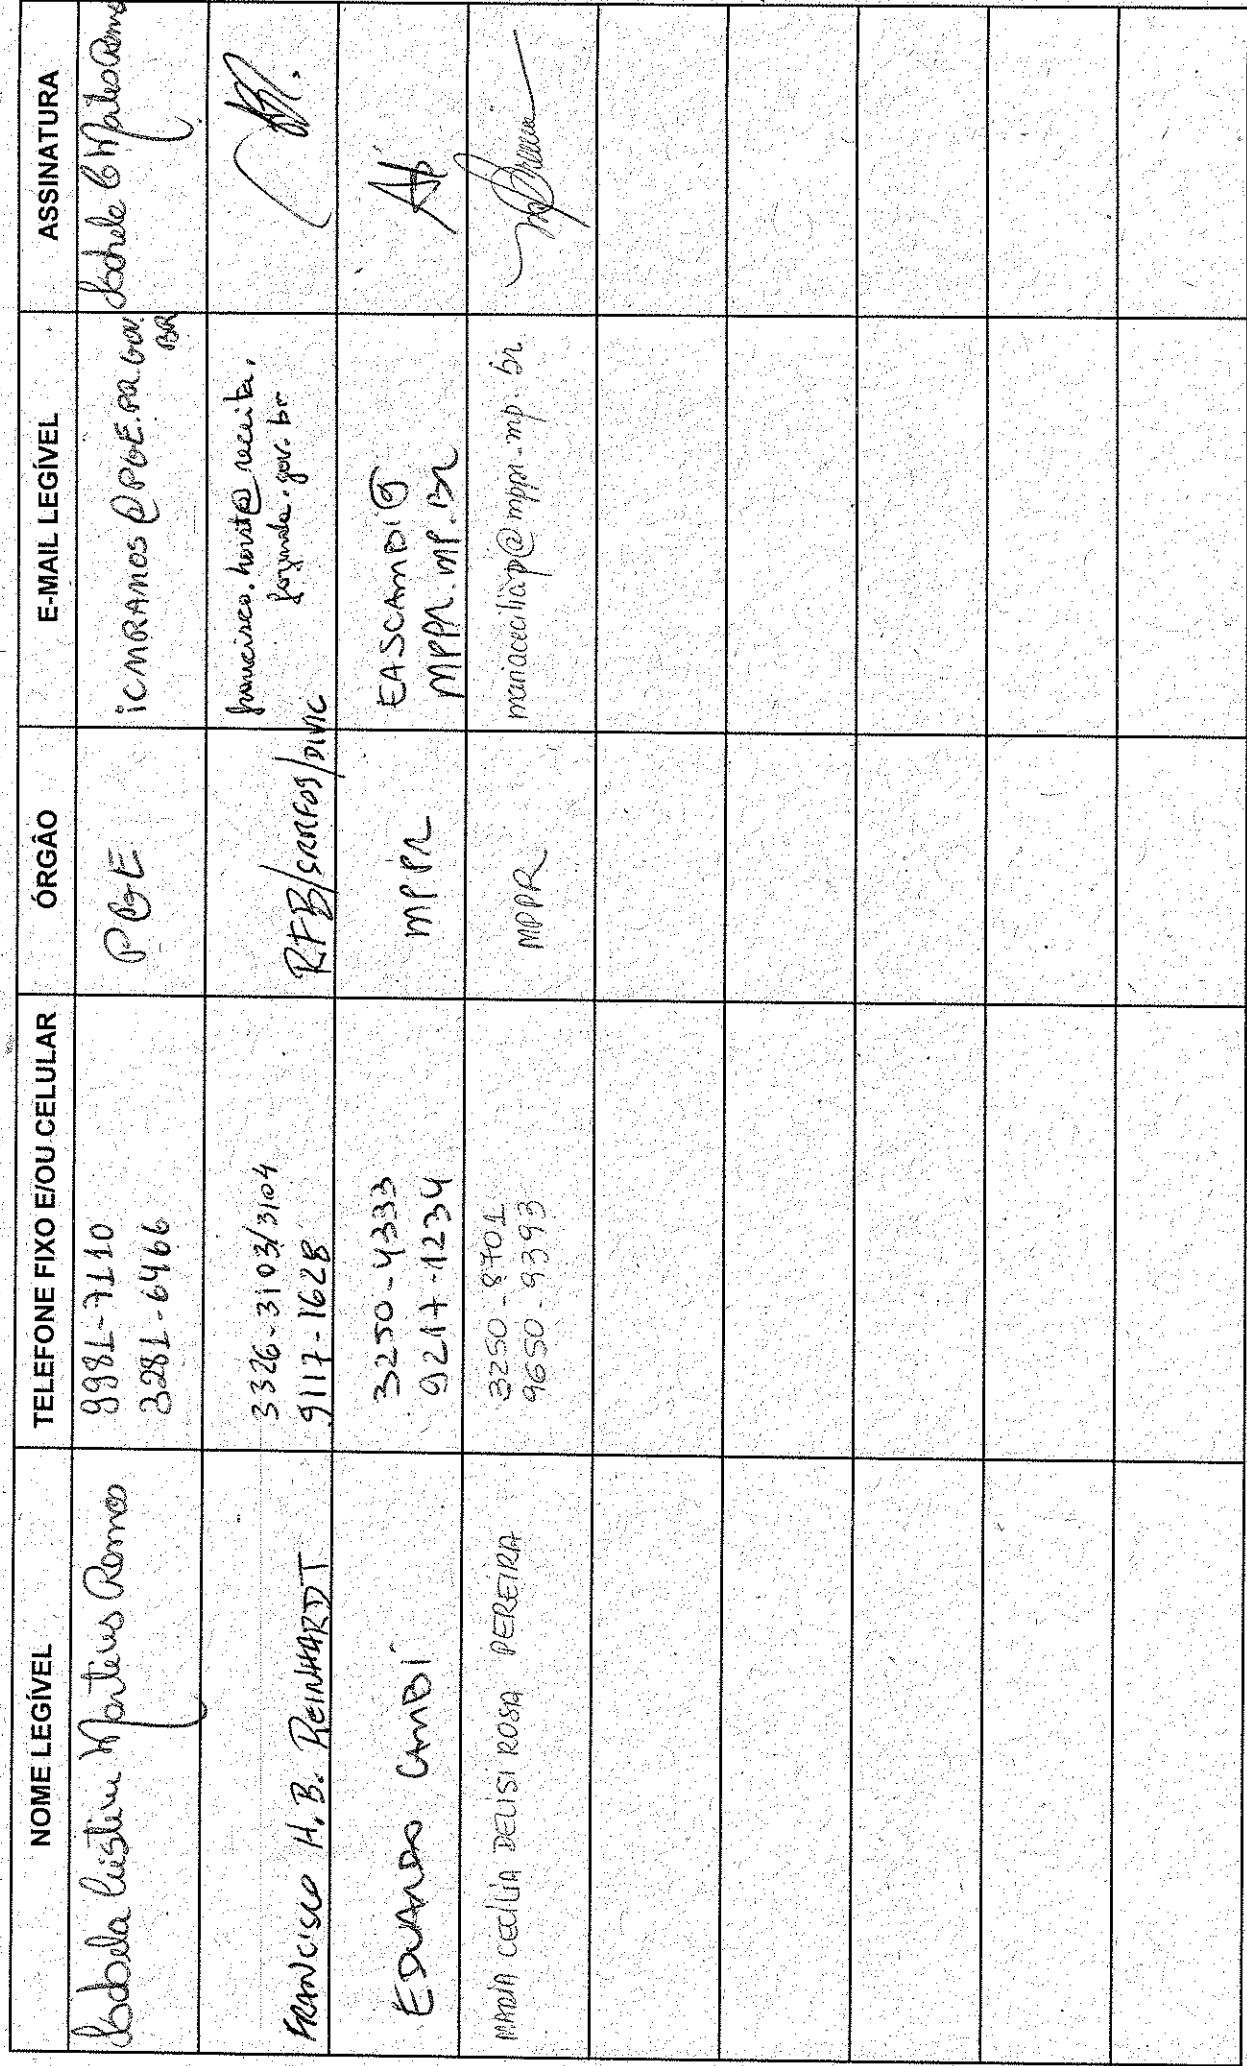 NOME LEGÍVEL TELEFONE FIXO E/OU CELULAR ÓRGÃO E-MAIL LEGÍVEL ASSINATURA
Isabela Cristine Martins Ramos
9981-7110
3281-6466
PGE
icmramos@PGE.PR.GOV.
BR
FRANCISCO H. B. REINHARDT
3326-3103/3104
9117-1628
RFB/SRRF09/DIVIC
francisco.horst@receita.
fazenda.gov.br
EDUARDO CAMBI
3250-4333
9217-1234
MPPR
EASCAMBI@
MPPR.MP.BR
MARIA CECÍLIA DELISI ROSA PEREIRA
3250-8701
9650-9393
MPPR
mariaceciliap@mppr.mp.br